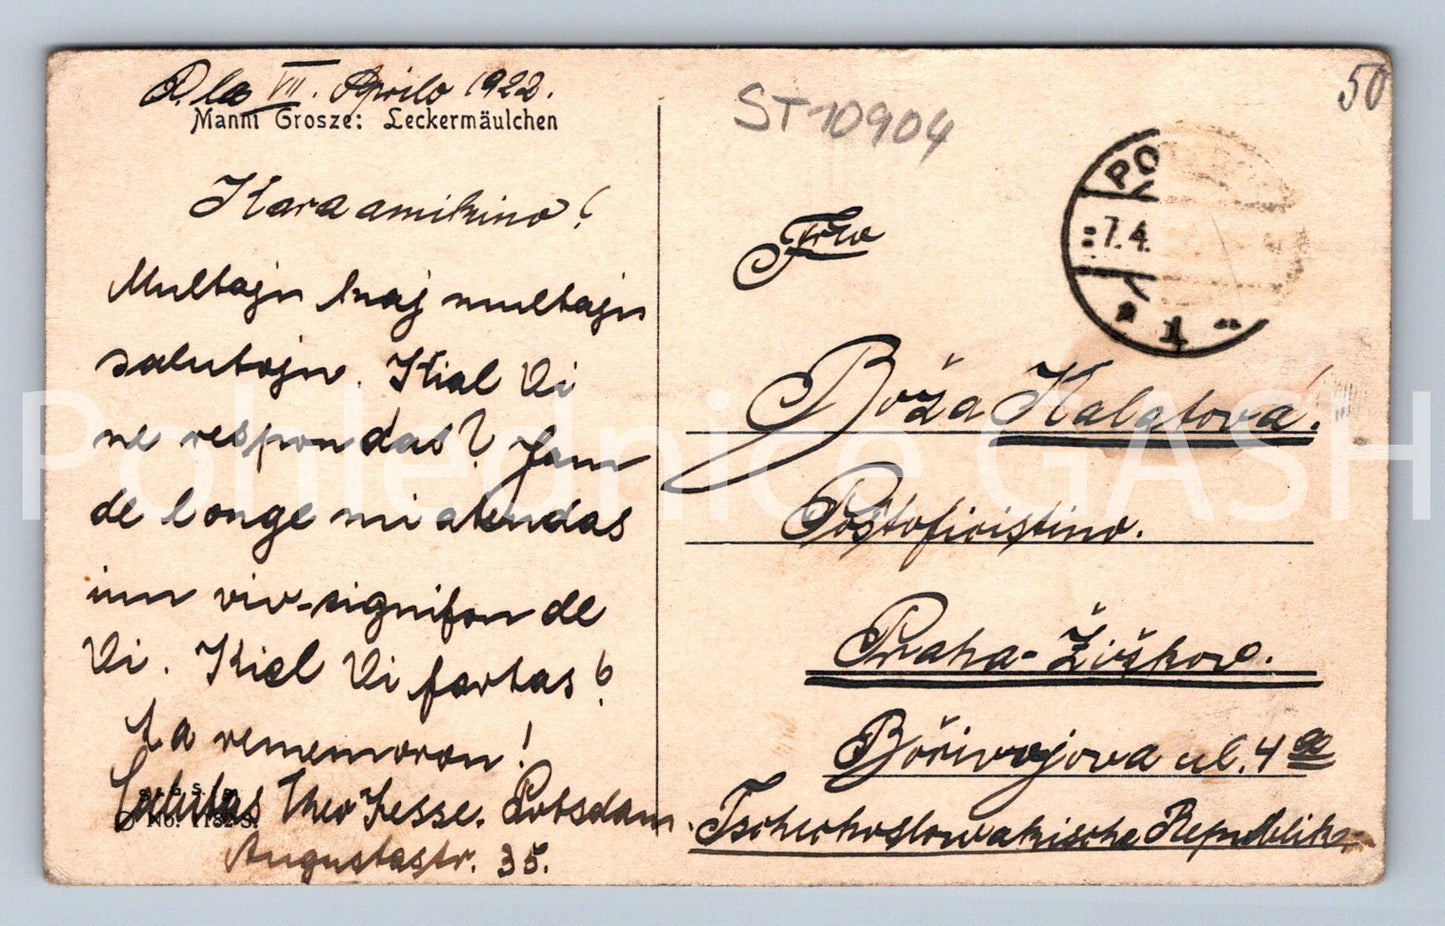 P. la VII. Aprilo 1922.
Manni Grosze: Leckermäulchen
Kara amikino!
Multajn kaj multajn
salutojn. Kial Vi
ne respondas? Jam
de longe mi atendas
iun viv-signifon de
Vi. Kiel Vi fartas?
La rememoron!
Salutas Theo Hesse. Potsdam.
No. 1182
Augustastr. 35.
50
ST-10904
PO
7.4.
1
Frl.
Boža Kalatová.
Poŝtoficistino.
Praha-Žižkow.
Bořivojova ul. 4
Tschechoslowakische Republik
Pohlednice GASH